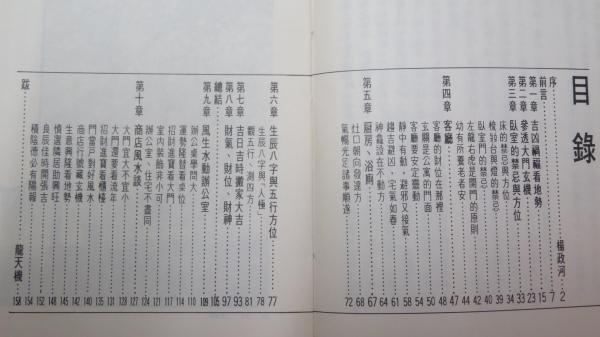 目錄
序 楊政河 2
前言 7
第一章 吉凶禍福看地勢 15
第二章 參透大門玄機 23
第三章 臥室的禁忌與方位 33
床的禁忌與方位 34
梳妝台與燈的禁忌 39
臥室門的禁忌 40
左龍右虎是開門的原則 42
幼有所養老者安 44
第四章 客廳 47
客廳的財位在那裡 48
玄關是公寓的門面 50
客廳要安定靈動 54
靜中有動，避邪又接氣 58
趨吉避凶，宅氣如春 61
神龕設在不動方 64
第五章 廚房、浴廁 67
灶口朝向發達方 68
氣暢光足諸事順遂 72
第六章 生辰八字與五行方位 77
生辰八字與「人極」 78
觀五行，測四方 81
第七章 吉日吉時搬家大吉 93
第八章 財氣、財位、財神 97
總結 105
第九章 風生水動辦公室 109
辦公桌學問大 110
運勢隆替看桌位 114
招財進寶看大門 117
室內裝飾非小可 121
辦公室、住宅不盡同 124
第十章 商店風水談 127
大門宜大不宜小 128
大門還要看流年 131
招財進寶看櫃檯 135
門當戶對好風水 140
商店行號藏玄機 142
生意興隆看地勢 145
慎選鄰居助興旺 148
良辰佳時開張吉 152
積陰德必有陽報 154
跋 龍天機 158